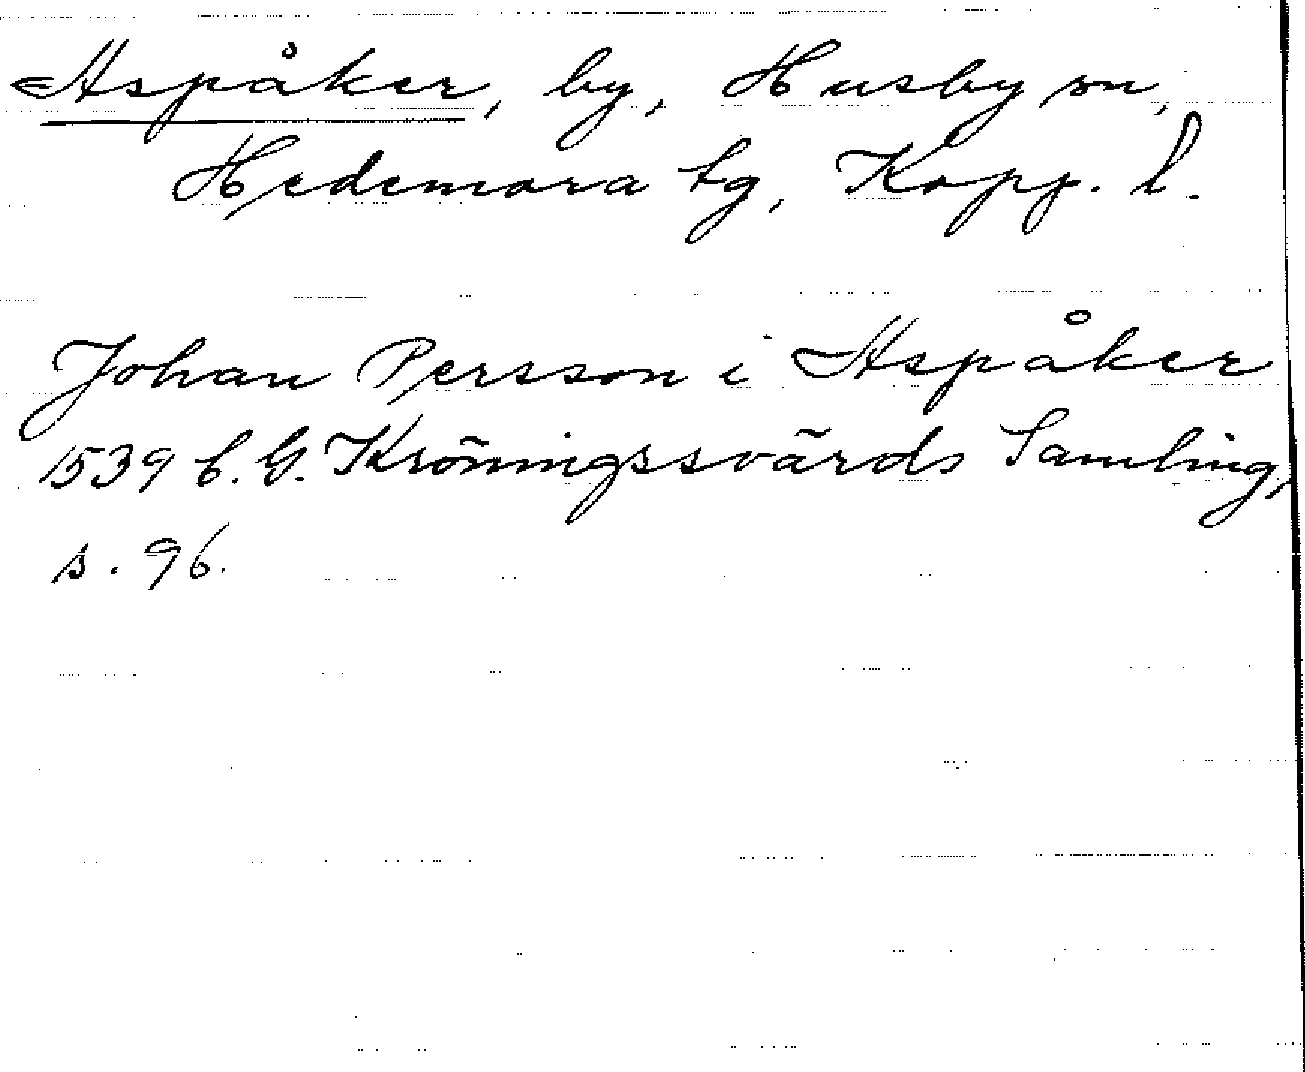 Aspåker, by, Husby sn,
Hedemora tg, Kopp. l.
Johan Persson i Aspåker
1539 C. G. Kröningssvärds Samling,
s. 96.